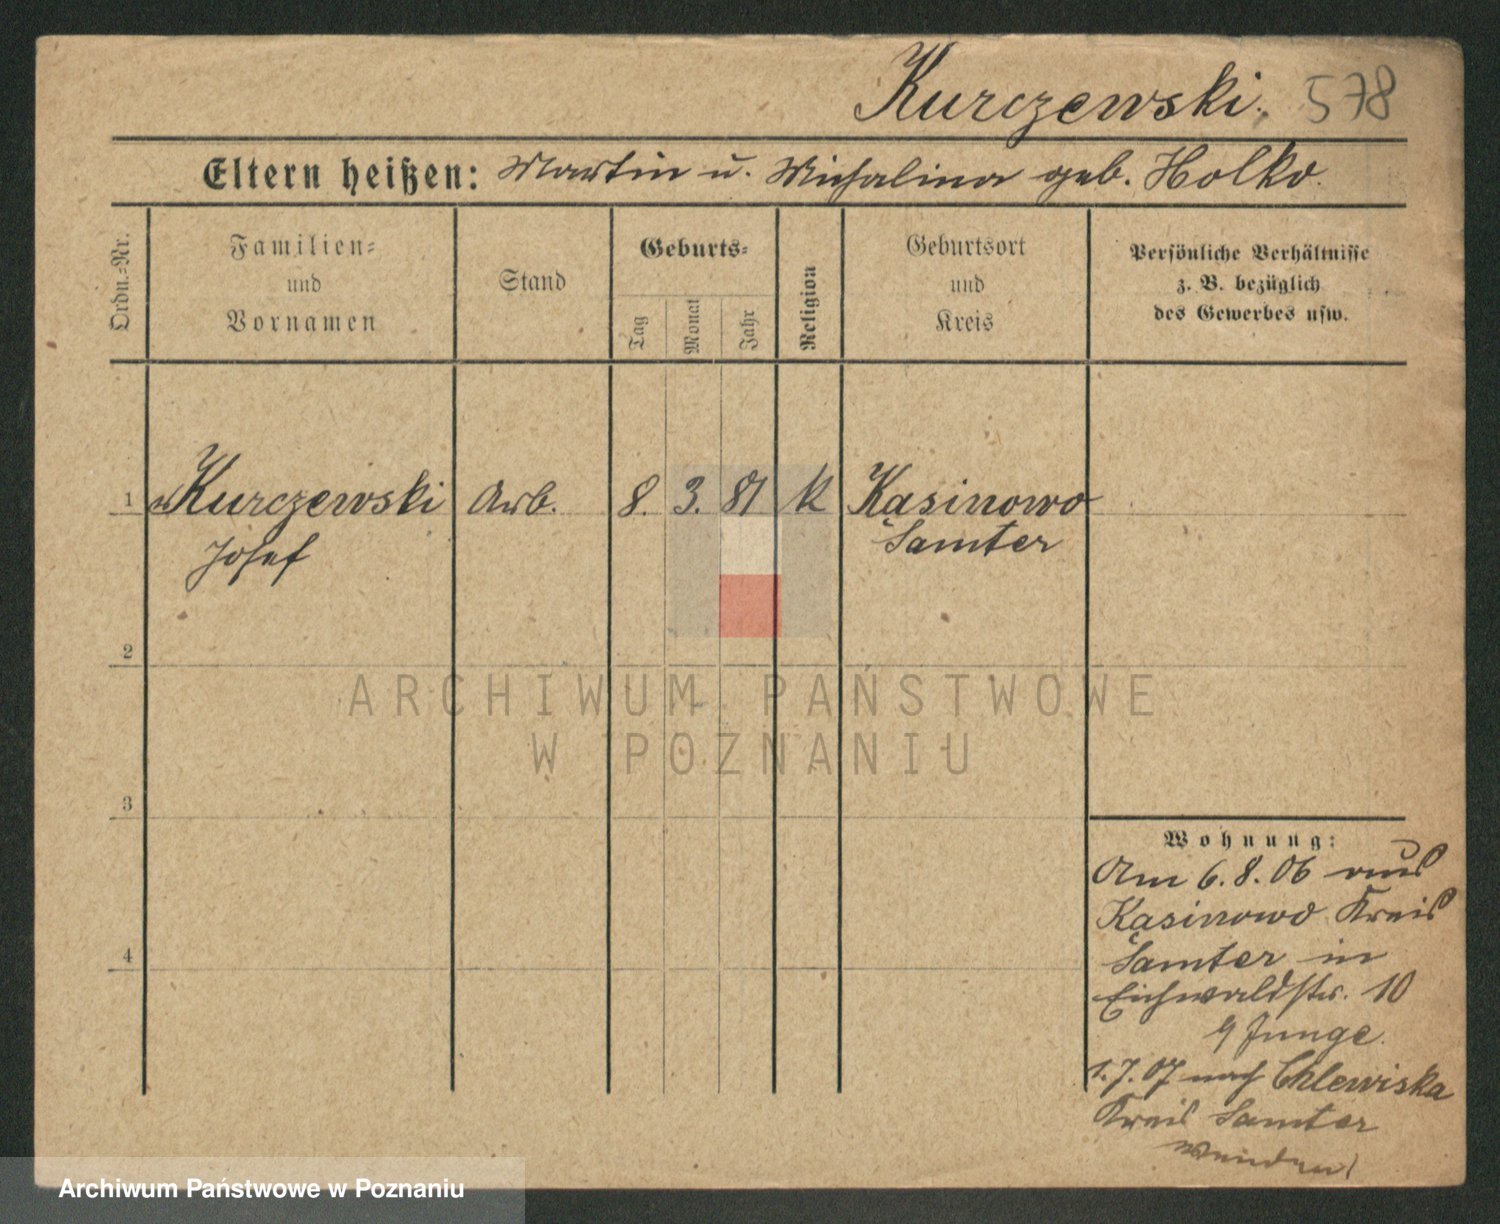 Kurczewski. 578
Eltern heißen: Martin u. Michalina geb. Holka.
Ordn.=Nr.
Familien=
und
Vornamen
Stand
Geburts=
Tag
Monat
Jahr
Religion
Geburtsort
und
Kreis
Persönliche Verhältnisse
z. B. bezüglich
des Gewerbes usw.
1 Kurczewski Arb. 8. 3. 81 k Kasinowo
Josef Samter
2
ARCHIWUM PAŃSTWOWE
W POZNANIU
3
Wohnung:
Am 6.8.06 aus
Kasinowo Kreis
Samter in
Eichwaldstr. 10
Junge.
1.7.07 nach Chlewiska
Kreis Samter
4
Archiwum Państwowe w Poznaniu